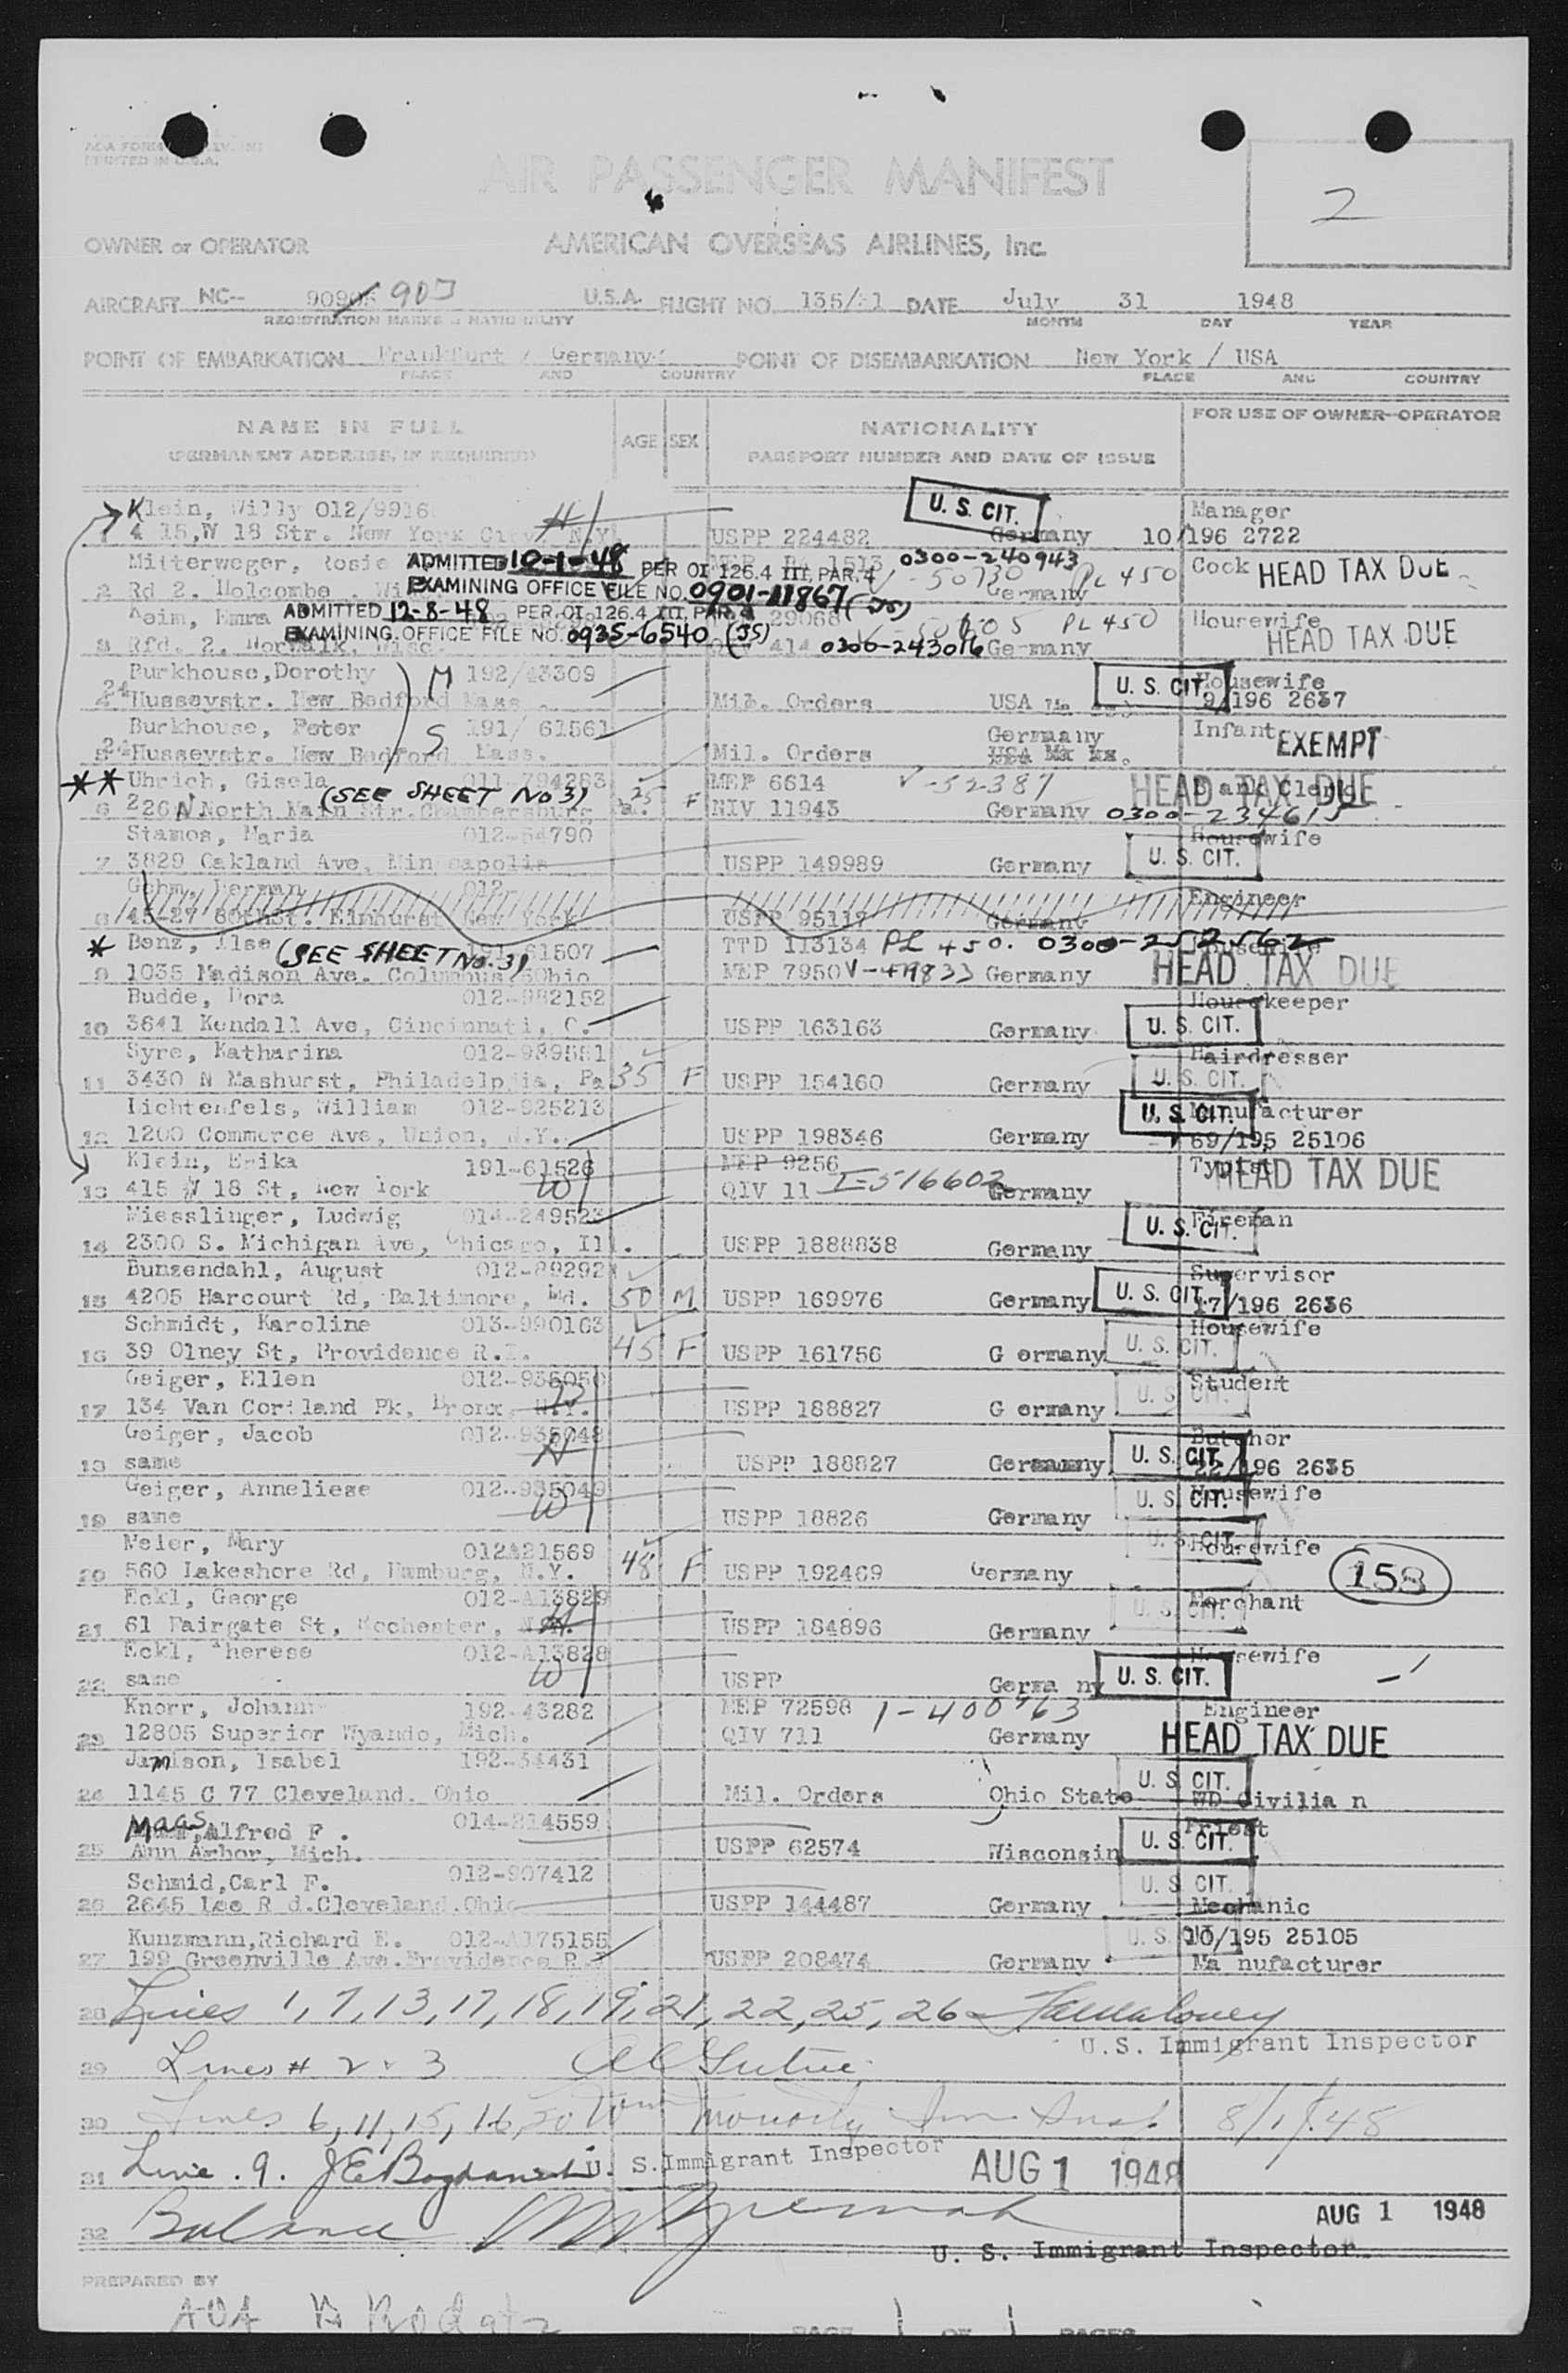 AOA FORM
PRINTED IN U.S.A.
AIR PASSENGER MANIFEST
2
OWNER or OPERATOR AMERICAN OVERSEAS AIRLINES, Inc.
AIRCRAFT NC-- 90905 903 U.S.A. FLIGHT NO. 135/31 DATE July 31 1948
REGISTRATION MARKS & NATIONALITY MONTH DAY YEAR
POINT OF EMBARKATION Frankfurt / Germany POINT OF DISEMBARKATION New York / USA
PLACE AND COUNTRY PLACE AND COUNTRY
NAME IN FULL AGE SEX NATIONALITY FOR USE OF OWNER-OPERATOR
(PERMANENT ADDRESS, IF REQUIRED) PASSPORT NUMBER AND DATE OF ISSUE
Klein, Willy 012/9916 H U. S. CIT. Manager
1 4 15,W 18 Str. New York City, N.Y. USPP 224482 Germany 10/196 2722
Mitterweger, Rosie ADMITTED 10-1-48 PER OI 126.4 III, PAR. 4 0300-240943 V-50730 PL 450 Cook HEAD TAX DUE
2 Rd 2. Holcombe . EXAMINING OFFICE FILE NO. 0901-11867 (JS) Germany
Heim, Emma ADMITTED 12-8-48 PER OI 126.4 III, PAR. 4 29068 PL 450 Housewife
3 Rfd. 2. Norwalk. Wisc. EXAMINING OFFICE FILE NO. 0935-6540 (JS) QIV 414 0300-243016 Germany HEAD TAX DUE
Burkhouse,Dorothy M 192/43309 U. S. CIT. Housewife
4 24 Husseystr. New Bedford Mass . Mil. Orders USA 9/196 2637
Burkhouse, Peter S 191/ 61561 Germaany Infant EXEMPT
5 24 Husseystr. New Bedford Mass. Mil. Orders USA
** Uhrich, Gisela 011-794283 (SEE SHEET NO 3) 25 MEP 6614 V-52387 Bank Clerk HEAD TAX DUE
6 226 N North Main Str.Chambersburg Pa. F NIV 11943 Germany 0300-234615
Stamos, Maria 012-54790 Housewife
7 3829 Oakland Ave, Minneapolis USPP 149989 Germany U. S. CIT.
Gohm, Herman 012- Engineer
8 45-27 80thSt. Elmhurst New York USPP 95117 Germany
* Benz, Ilse (SEE SHEET NO. 3) 191-61507 TTD 113134 PL 450. 0300-252562 Housewife
9 1035 Madison Ave. Columbus, Ohio MEP 7950 Germany HEAD TAX DUE
Budde, Dora 012-982152 Housekeeper
10 3641 Kendall Ave, Cincinnati, O. USPP 163163 Germany U. S. CIT.
Syre, Katharina 012-989551 Hairdresser
11 3430 N Mashurst, Philadelpjia, Pa 35 F USPP 154160 Germany U. S. CIT.
Lichtenfels, William 012-925213 U. S. CIT. Manufacturer
12 1200 Commerce Ave, Union, N.Y. USPP 198346 Germany 69/195 25106
Klein, Erika 191-61526 MEP 9256 Typist HEAD TAX DUE
13 415 W 18 St, New York W QIV 11 I-516602 Germany
Miesslinger, Ludwig 014-249523 Fireman
14 2300 S. Michigan Ave, Chicago, Ill. USPP 1888838 Germany U. S. CIT.
Bunzendahl, August 012-89292 Supervisor
15 4205 Harcourt Rd, Baltimore, Md. 50 M USPP 169976 Germany U. S. CIT. 17/196 2636
Schmidt, Karoline 013-990163 Housewife
16 39 Olney St, Providence R.I. 45 F USPP 161756 G ermany U. S. CIT.
Geiger, Ellen 012-935050 Student
17 134 Van Cortland Pk, Bronx, N.Y. D USPP 188827 G ermany U. S. CIT.
Geiger, Jacob 012-935048 H Butcher
18 same USPP 188827 Germany U. S. CIT. 22/196 2635
Geiger, Anneliese 012-935049 W Housewife
19 same USPP 18826 Germany U. S. CIT.
Meier, Mary 012A21569 U. S. CIT. Housewife
20 560 Lakeshore Rd, Hamburg, N.Y. 48 F USPP 192469 Germany 158
Eckl, George 012-A13829 H Merchant
21 61 Fairgate St, Rochester, N.Y. USPP 184896 Germany U. S. CIT.
Eckl, Therese 012-A13828 W Housewife
22 same USPP Germa ny U. S. CIT.
Knorr, Johann 192-43282 MEP 72598 1-400763 Engineer
23 12805 Superior Wyando, Mich. QIV 711 Germany HEAD TAX DUE
Jamison, Isabel 192-54431
24 1145 C 77 Cleveland. Ohio Mil. Orders Ohio State U. S. CIT. WD Civilia n
Maas, Alfred F . 014-214559 Priest
25 Ann Arbor, Mich. USPP 62574 Wisconsin U. S. CIT.
Schmid,Carl F. 012-907412 U. S. CIT.
26 2645 Lee R d.Cleveland.Ohio USPP 144487 Germany Mechanic
Kunzmann,Richard E. 012-A175155 U. S. CIT. 10/195 25105
27 199 Greenville Ave.Providence R.I USPP 208474 Germany Ma nufacturer
28 Lines 1, 7, 13, 17, 18, 19, 21, 22, 25, 26
U.S. Immigrant Inspector
29 Lines # 2 & 3
30 Lines 6, 11, 15, 16, 20 Imm Insp. 8/1/48
31 Line . 9. U. S. Immigrant Inspector AUG 1 1948
32 Balance AUG 1 1948
U. S. Immigrant Inspector
PREPARED BY
AOA
PAGE 1 OF 1 PAGES